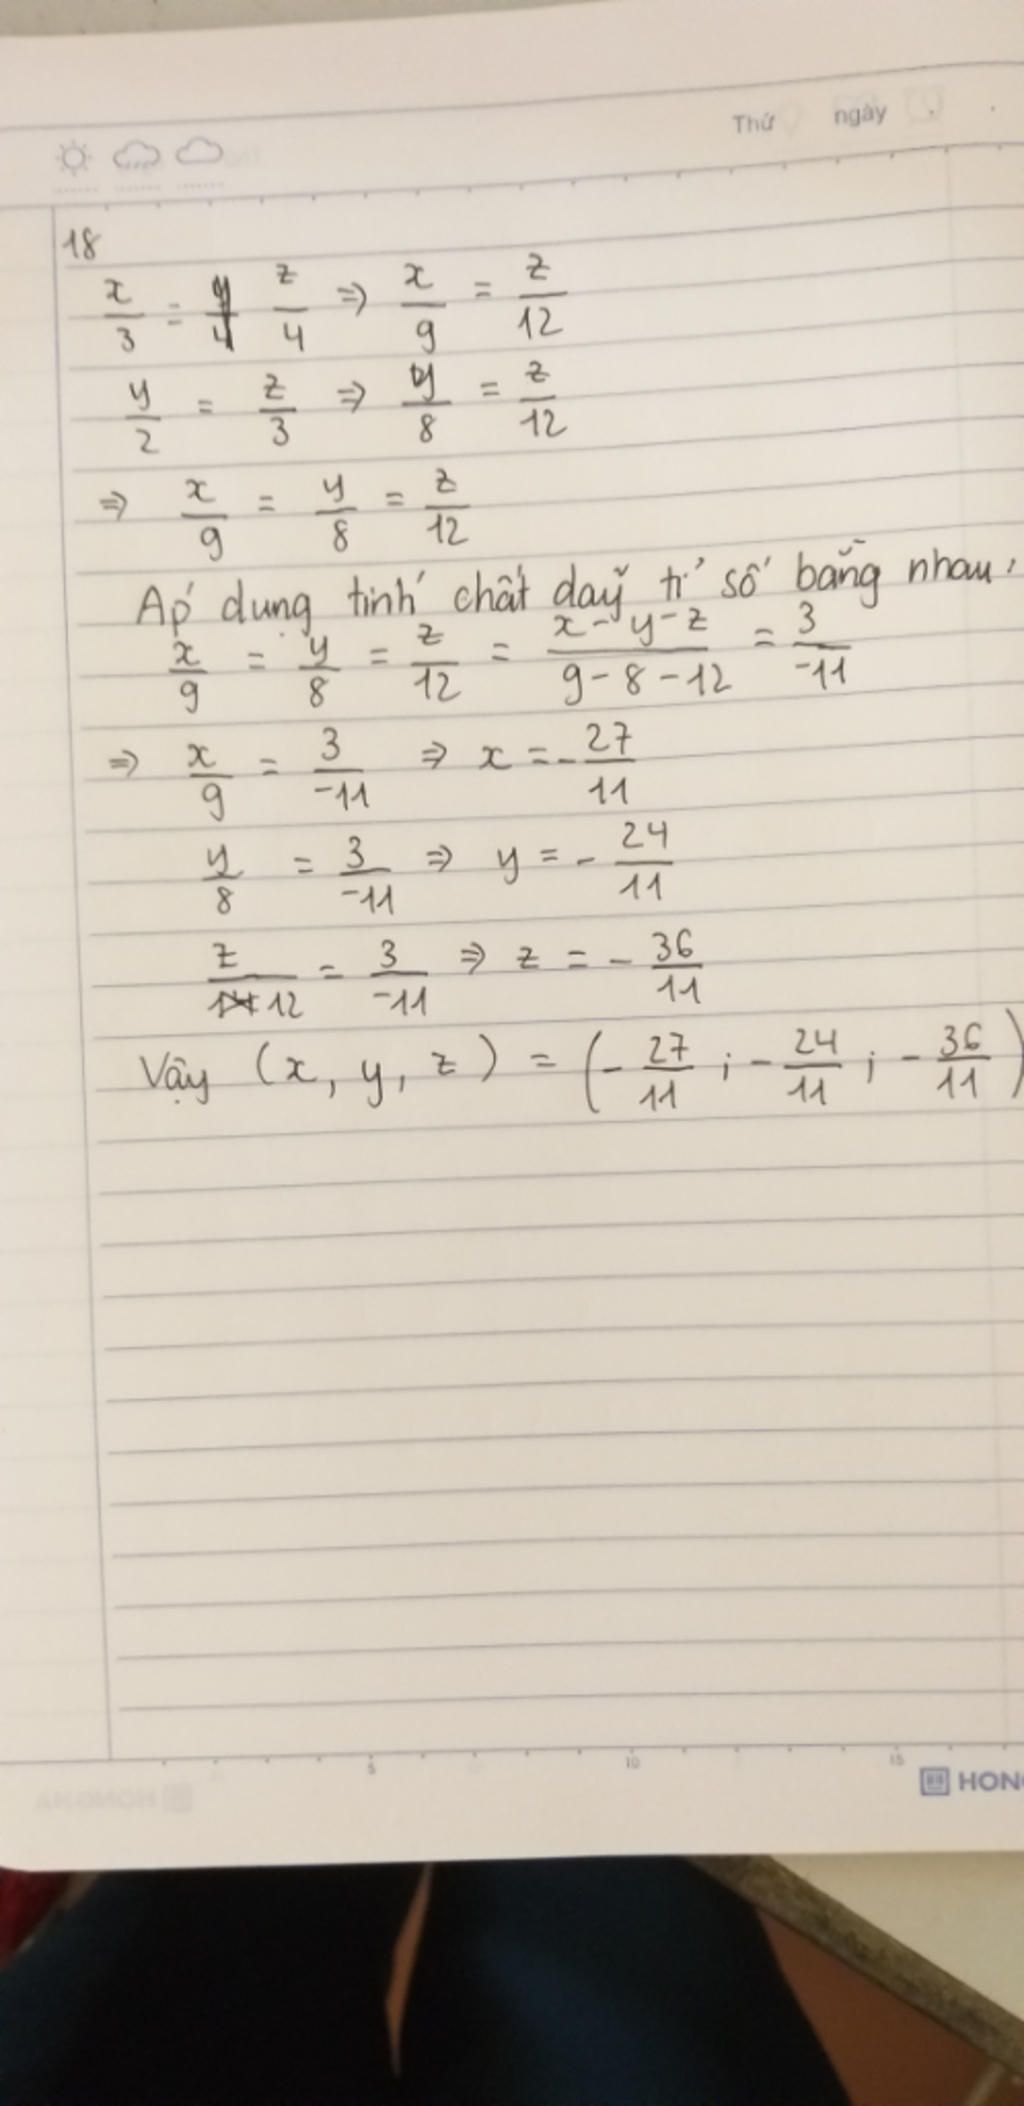 Thứ ngày
18
x/3 = z/4 => x/9 = z/12
y/2 = z/3 => y/8 = z/12
=> x/9 = y/8 = z/12
Áp dụng tính chất dãy tỉ số bằng nhau:
x/9 = y/8 = z/12 = (x-y-z)/(9-8-12) = 3/-11
=> x/9 = 3/-11 => x = -27/11
y/8 = 3/-11 => y = -24/11
z/12 = 3/-11 => z = -36/11
Vậy (x, y, z) = (-27/11; -24/11; -36/11)
5 10 15
HONG